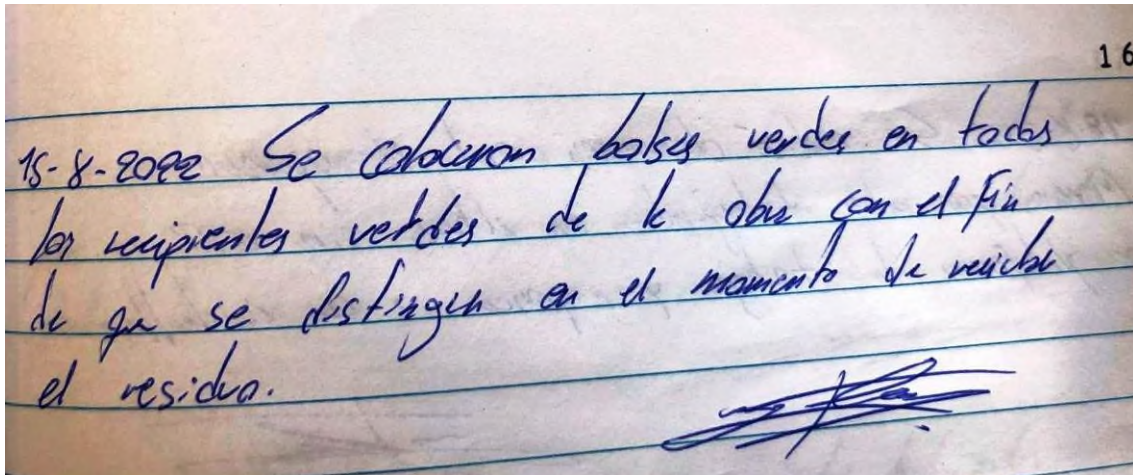 16
15-8-2022 Se colocaron bolsas verdes en todos
los recipientes verdes de la obra con el Fin
de que se distingan en el momento de reciclar
el residuo.